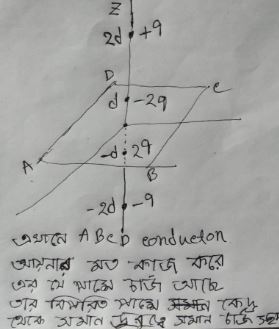 Z
2d +q
D
C
d -2q
-d 2q
A
B
-2d -q
এখানে ABCD conductor
আয়নার মত কাজ করে
এর যে পাশে চার্জ আছে
তার বিপরিত পাশে কেন্দ্র
থেকে সমান দূরত্বে সমান চার্জ